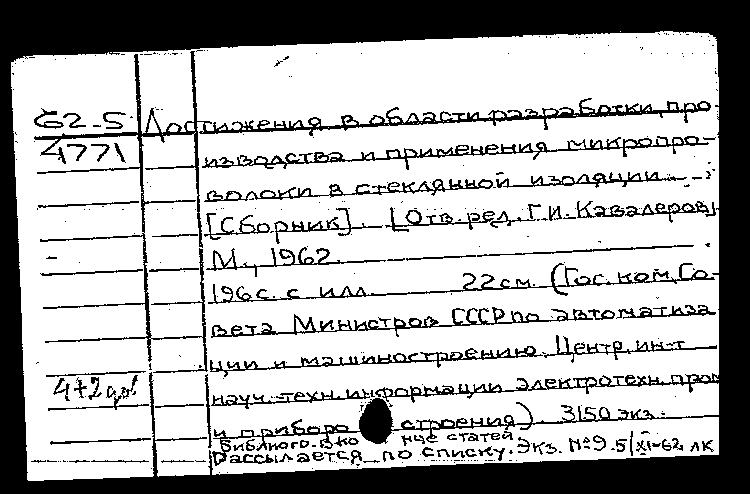 62-5 Достижения в области разработки, про-
4771 изводства и применения микропро-
волоки в стеклянной изоляции.
[Сборник]. [Отв. ред. Г.И. Кавалеров]
М., 1962.
196 с. с илл. 22 см. (Гос. ком. Со-
вета Министров СССР по автоматиза
ции и машиностроению. Центр. ин-т
науч.-техн. информации электротехн. пром
и приборостроения). 3150 экз.
4+2 доб
Библиогр. в конце статей
Рассылается по списку. Экз. №9. 5/XI-62 ЛК